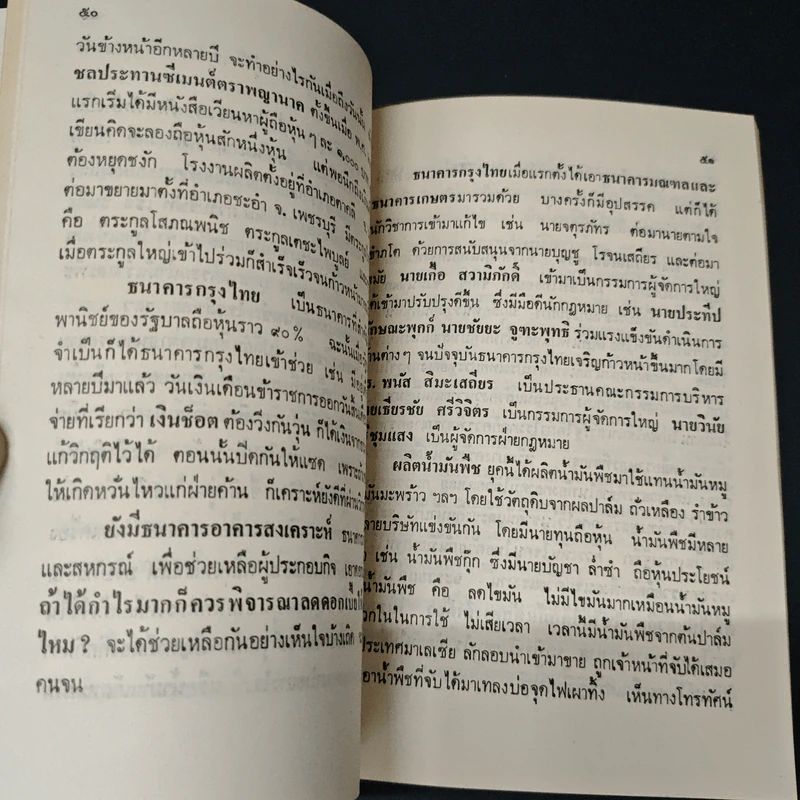 ๕๐
วันข้างหน้าอีกหลายปี จะทำอย่างไรกันเมื่อถึงวันนั้น
ชลประทานซีเมนต์ตราพญานาค ตั้งขึ้นเมื่อ พ.ศ.
แรกเริ่มได้มีหนังสือเวียนหาผู้ถือหุ้น ๆ ละ ๑,๐๐๐
เขียนคิดจะลองถือหุ้นสักหนึ่งหุ้น แต่พอนึกถึง
ต้องหยุดชงัก โรงงานผลิตตั้งอยู่ที่อำเภอตาคลี
ต่อมาขยายมาตั้งที่อำเภอชะอำ จ. เพชรบุรี มีตระกูล
คือ ตระกูลโสภณพนิช ตระกูลเตชะไพบูลย์
เมื่อตระกูลใหญ่เข้าไปร่วมก็สำเร็จเร็วจนก้าวหน้า
ธนาคารกรุงไทย เป็นธนาคารที่
พานิชย์ของรัฐบาลถือหุ้นราว ๙๐% ฉะนั้นเมื่อ
จำเป็นก็ได้ธนาคารกรุงไทยเข้าช่วย เช่น
หลายปีมาแล้ว วันเงินเดือนข้าราชการออกวันสิ้น
จ่ายที่เรียกว่า เงินช็อต ต้องวิ่งกันวุ่น ก็ได้เงินจาก
แก้วิกฤติไว้ได้ ตอนนั้นปีดกันให้แซด เพราะ
ให้เกิดหวั่นไหวแก่ฝ่ายค้าน ก็เคราะห์ยังดีที่ผ่าน
ยังมีธนาคารอาคารสงเคราะห์ ธนาคาร
และสหกรณ์ เพื่อช่วยเหลือผู้ประกอบกิจ
ถ้าได้กำไรมากก็ควรพิจารณาลดดอกเบี้ย
ไหม? จะได้ช่วยเหลือกันอย่างเห็นใจบ้างเถิด
คนจน
๕๑
ธนาคารกรุงไทยเมื่อแรกตั้งได้เอาธนาคารมณฑลและ
ธนาคารเกษตรมารวมด้วย บางครั้งก็มีอุปสรรค แต่ก็ได้
นักวิชาการเข้ามาแก้ไข เช่น นายจตุรภัทร ต่อมานายตามใจ
ขำภโต ด้วยการสนับสนุนจากนายบุญชู โรจนเสถียร และต่อมา
สมัย นายเกื้อ สวามิภักดิ์ เข้ามาเป็นกรรมการผู้จัดการใหญ่
ได้เข้ามาปรับปรุงดีขึ้น ซึ่งมีมือดีนักกฎหมาย เช่น นายประทีป
ลักษณะพุกก์ นายชัยยะ จูฑะพุทธิ ร่วมแรงแข็งขันดำเนินการ
ด้านต่าง ๆ จนปัจจุบันธนาคารกรุงไทยเจริญก้าวหน้าขึ้นมากโดยมี
ดร. พนัส สิมะเสถียร เป็นประธานคณะกรรมการบริหาร
นายเธียรชัย ศรีวิจิตร เป็นกรรมการผู้จัดการใหญ่ นายวินัย
ชุมแสง เป็นผู้จัดการฝ่ายกฎหมาย
ผลิตน้ำมันพืช ยุคนี้ได้ผลิตน้ำมันพืชมาใช้แทนน้ำมันหมู
น้ำมันมะพร้าว ฯลฯ โดยใช้วัตถุดิบจากผลปาล์ม ถั่วเหลือง รำข้าว
หลายบริษัทแข่งขันกัน โดยมีนายทุนถือหุ้น น้ำมันพืชมีหลาย
เช่น น้ำมันพืชกุ๊ก ซึ่งมีนายบัญชา ล่ำซำ ถือหุ้นประโยชน์
น้ำมันพืช คือ ลดไขมัน ไม่มีไขมันมากเหมือนน้ำมันหมู
สะดวกในในการใช้ ไม่เสียเวลา เวลานี้มีน้ำมันพืชจากต้นปาล์ม
ประเทศมาเลเซีย ลักลอบนำเข้ามาขาย ถูกเจ้าหน้าที่จับได้เสมอ
เอาน้ำพืชที่จับได้มาเทลงบ่อจุดไฟเผาทิ้ง เห็นทางโทรทัศน์